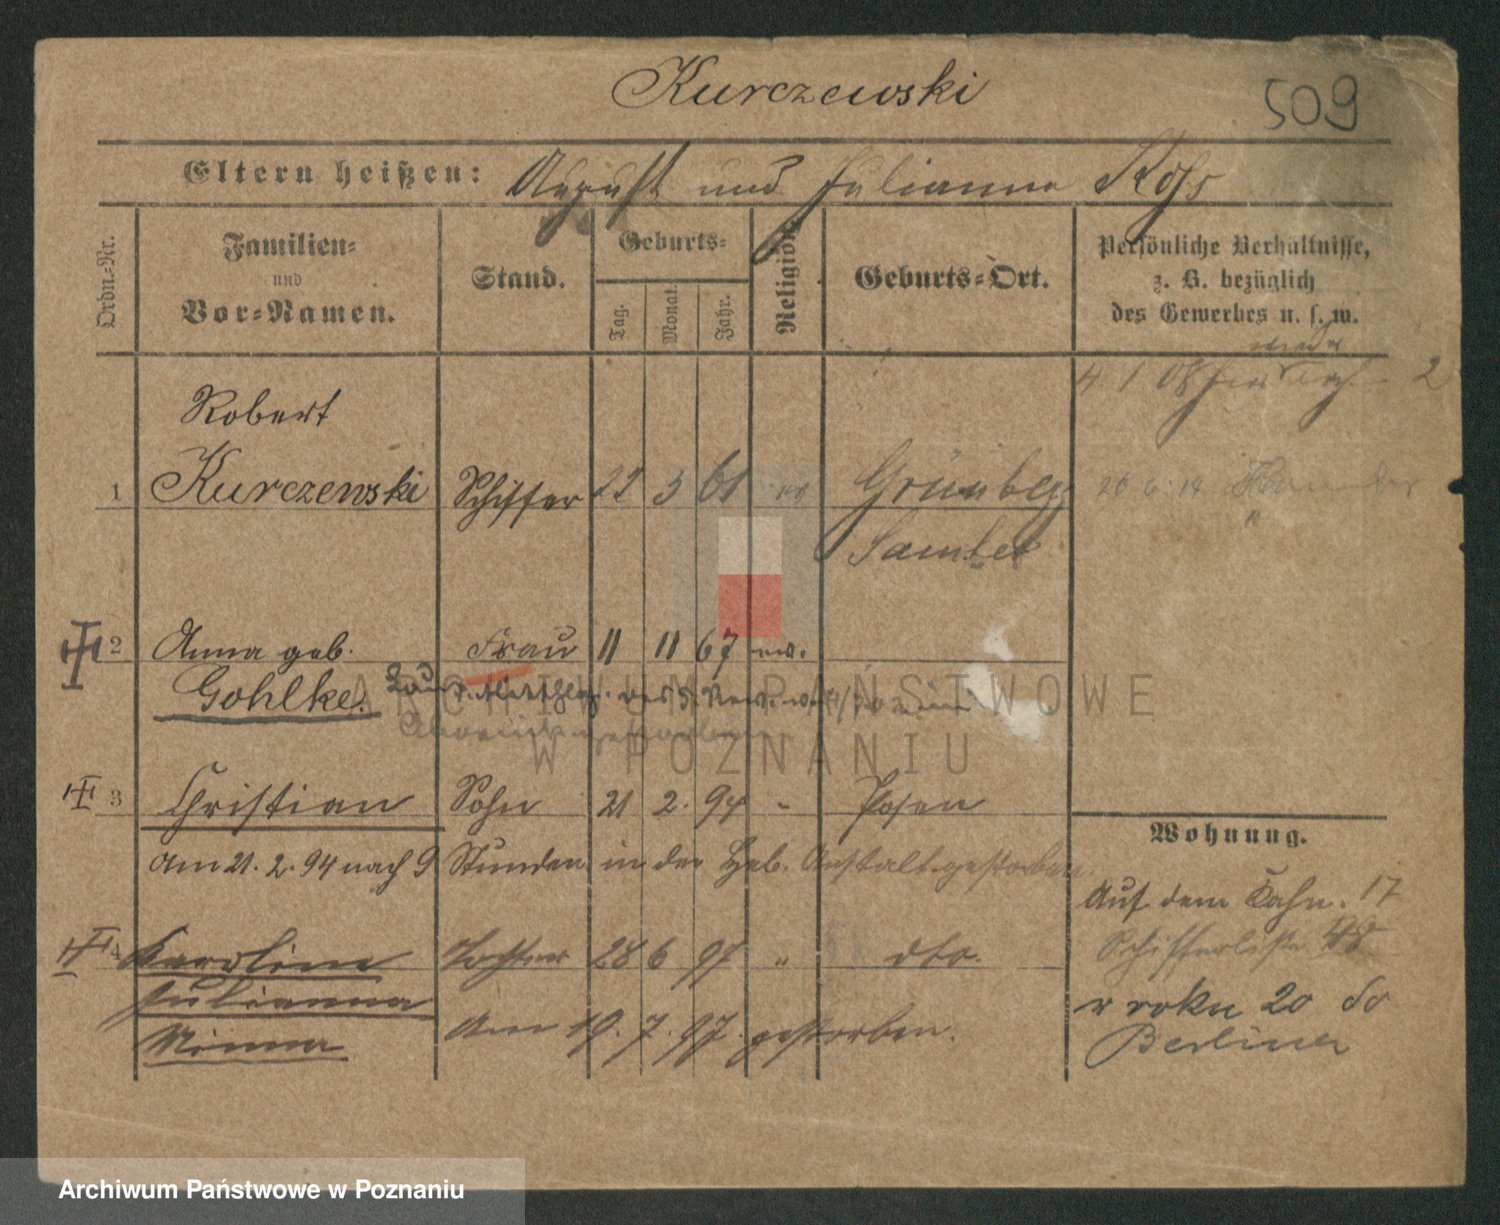 Kurczewski
509
Eltern heißen: August und Julianna
Ordn.-Nr.
Familien-
und
Vor-Namen.
Stand.
Geburts-
Tag.
Monat.
Jahr.
Religion.
Geburts-Ort.
Persönliche Verhältnisse,
z. B. bezüglich
des Gewerbes u. s. w.
Robert
1 Kurczewski Schiffer 3 61 Grünberg
Samter
2 Anna geb. Frau 11 11 67 ev.
Gohlke.
3 Christian Sohn 21 2. 94 " Posen
Am 21. 2. 94 nach 9 Stunden in der Heb. Anstalt gestorben.
4 Karoline Tochter 28 6 97 " dto.
Julianna
Minna Am 19. 7. 97. gestorben.
Wohnung.
Auf dem Kahn. 17
Schifferliste
w roku 20 do
Berlina
ARCHIWUM PAŃSTWOWE
W POZNANIU
Archiwum Państwowe w Poznaniu